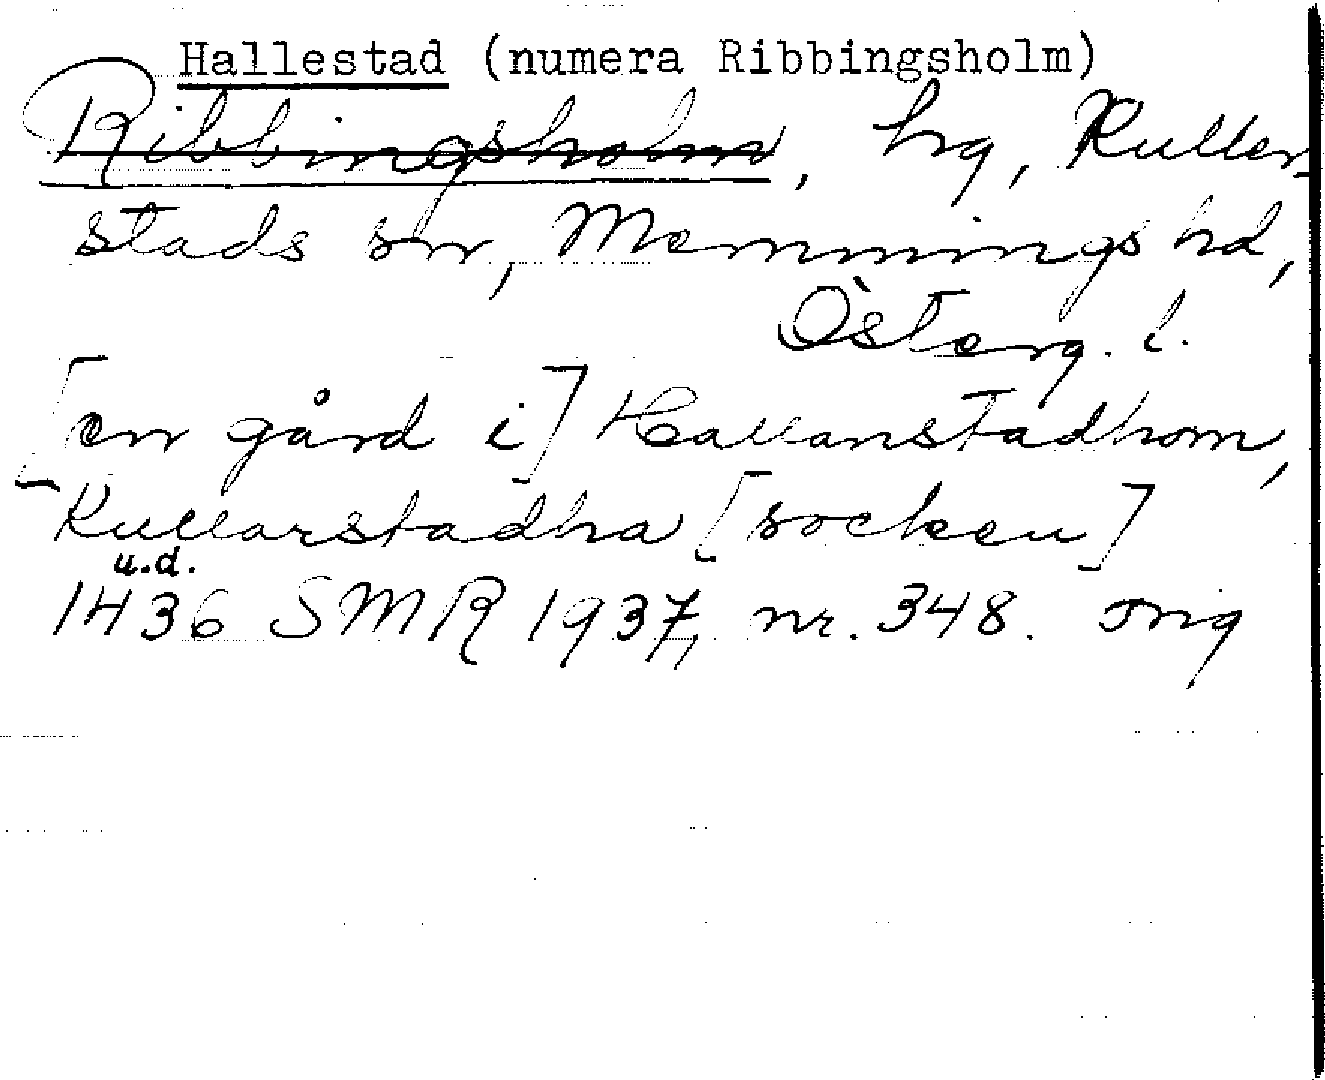 Hallestad (numera Ribbingsholm)
Ribbingsholm, hg, Kuller-
stads sn, Memmings hd,
Österg. l.
[en gård i] Hallanstadhom,
Kullarstadha [socken]
u.d.
1436 SMR 1937, nr. 348. orig